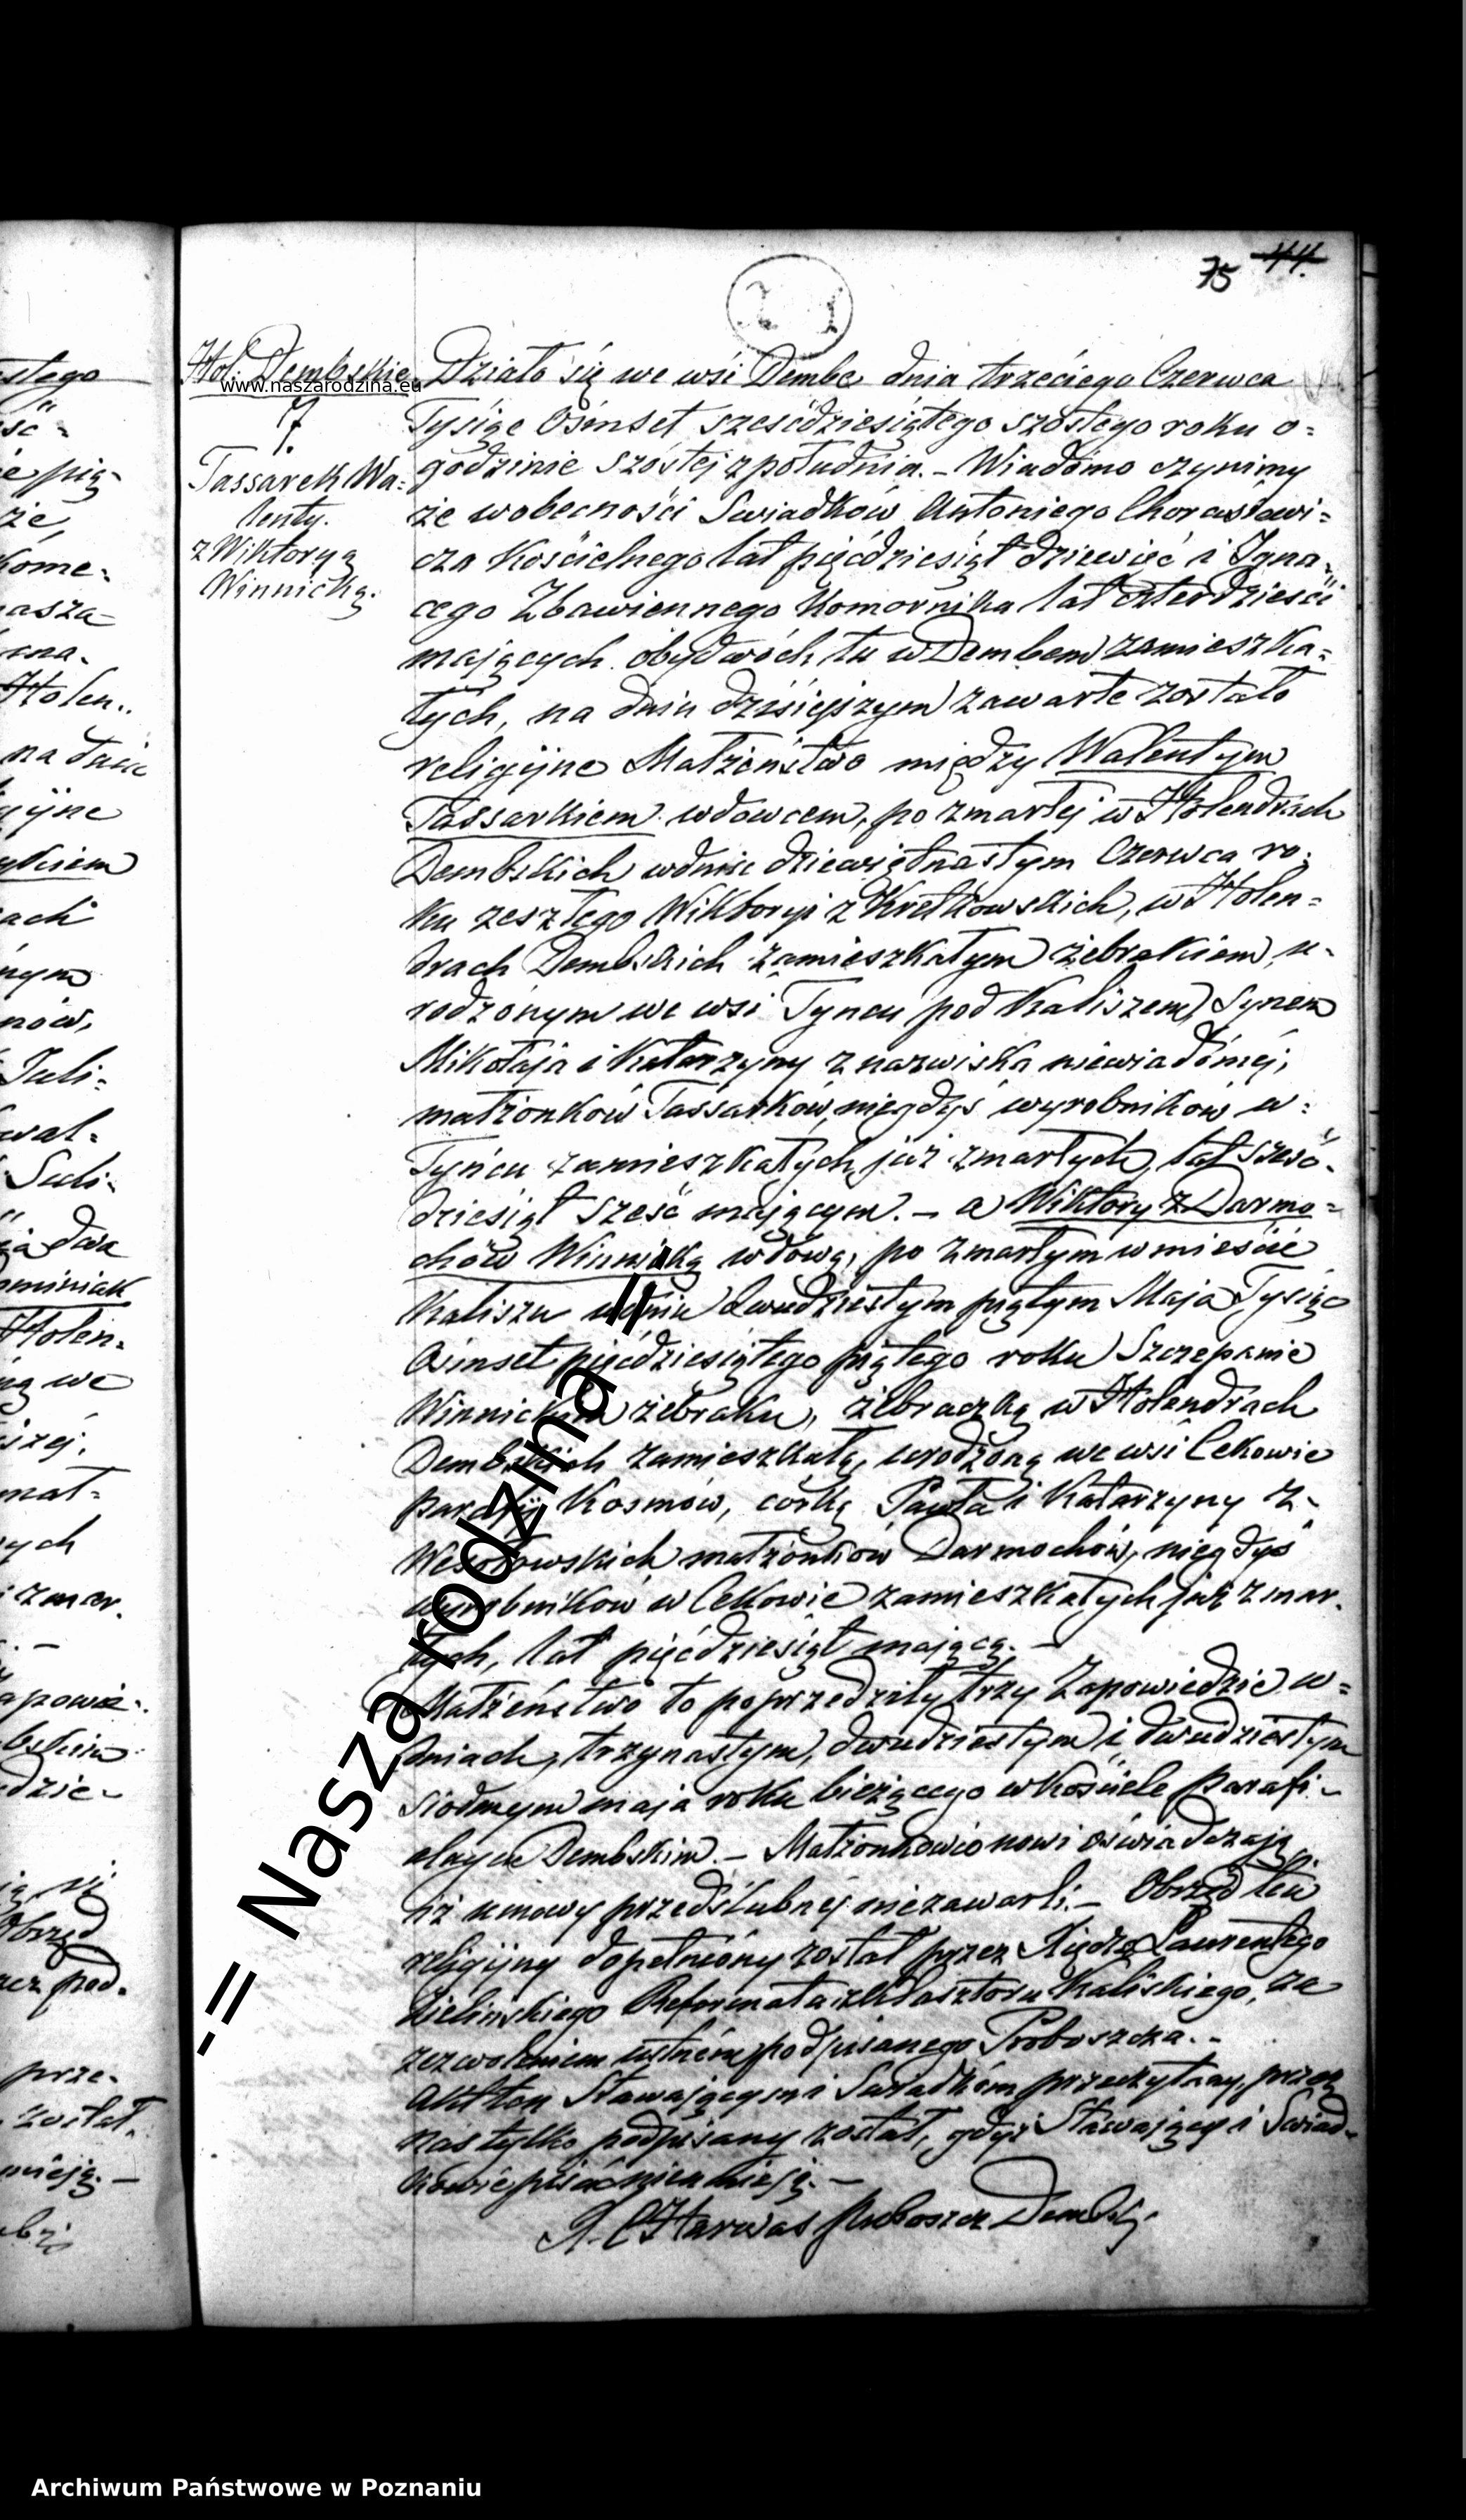 75 44.
Hol: Dembskie
www.naszarodzina.eu
7.
Tassarek Wa=
lenty.
z Wiktoryą
Winnicką.
Działo się we wsi Dembe dnia trzeciego Czerwca
Tysiąc Ośmset sześćdziesiątego szóstego roku o=
godzinie szóstej z południa. – Wiadomo czynimy
że wobecności Swiadków Antoniego
cza Kościelnego lat pięćdziesiąt dziewięć i Igna=
cego Zbawiennego Komornika lat czterdzieści
mających obydwóch tu w Dembem zamieszka=
łych, na dniu dzisiejszym zawarte zostało
religijne Małżeństwo między Walentym
Tassarkiem wdowcem, po zmarłej w Holendrach
Dembskich wdniu dziewiętnastym Czerwca ro=
ku zeszłego Wiktoryi z Kretkowskich, w Holen=
drach Dembskich zamieszkałym żebrakiem u-
rodzonym we wsi Tyńcu pod Kaliszem, Synem
Mikołaja i Katarzyny z nazwiska niewiadomej,
małżonków Tassarków, niegdyś wyrobników w=
Tyńcu zamieszkałych, już zmarłych, lat sześć-
dziesiąt sześć mającym. – a Wiktoryą z Darmo=
chów Winnicką wdową, po zmarłym w mieście
Kaliszu wdniu dwudziestym piątym Maja Tysiąc
Ośmset pięćdziesiątego piątego roku Szczepanie
Winnickim żebraku, żebraczką w Holendrach
Dembskich zamieszkałą, urodzoną we wsi Cekowie
parafji Kosmów, córką Pawła i Katarzyny z-
Wesołowskich małżonków Darmochów, niegdyś
wyrobników w Cekowie zamieszkałych już zmar-
łych, lat pięćdziesiąt mającą. –
Małżeństwo to poprzedziły trzy Zapowiedzie w=
dniach, trzynastym, dwudziestym i dwudziestym
siódmym maja roku bieżącego w Kościele parafi-
alnym Dembskim. – Małżonkowie nowi oświadczają,
iż umowy przedślubnej niezawarli. – Obrzęd ten
religijny dopełniony został przez Xiędza Laurentego
Zielinskiego Reformata z Klasztoru Kaliskiego, za
zezwoleniem ustném podpisanego Proboszcza. –
Akt ten Stawającym i Swiadkóm przeczytany, przez
nas tylko podpisany został, gdyż Stawający i Swiad-
kowie pisać nieumieją. –
Proboszcz Dembski
-= Nasza rodzina =
stego
ie pię-
że,
kome=
Holen..
na dniu
ijne
ykiem
ach
nym
nów,
Juli=
wal=
Suli-
dwa
ominiak
Holen=
ną we
mał=
ych
zmar.
apowie-
Obrzęd
zez pod.
prze-
został.
Archiwum Państwowe w Poznaniu